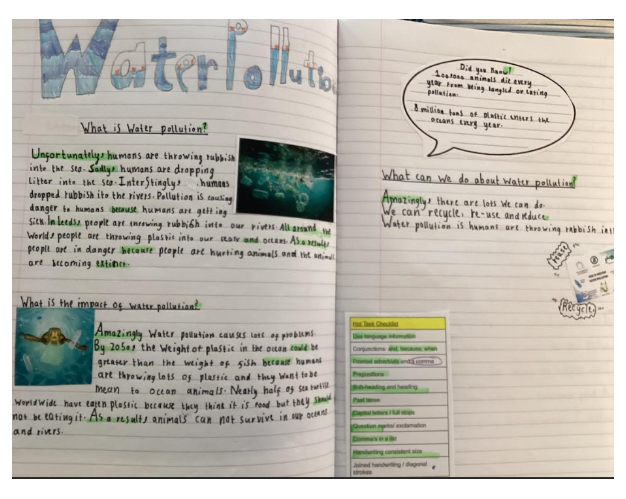 Water Pollution
What is Water pollution?
Unfortunately, humans are throwing rubbish
into the sea. Sadly, humans are dropping
litter into the sea. Interstingly, humans
dropped rubbish ito the rivers. Pollution is causing
danger to humans because humans are getting
sick. In Leeds, people are throwing rubbish into our rivers. All around the
World, people are throwing plastic into our seas and oceans. As a result,
people are in danger because people are hurting animals and the animals
are becoming extinct.
What is the impact of water pollution?
Amazingly Water pollution causes lots of problems.
By 2050, the weight of plastic in the ocean could be
greater than the weight of fish because humans
are throwing lots of plastic and they want to be
mean to ocean animals. Nearly half of sea turtles
Worldwide have eaten plastic because they think it is food but they should
not be eating it. As a result, animals can not survive in our oceans
and rivers.
Did you know?
animals die every
year from being tangled or eating
pollution.
8 million tons of plastic enters the
oceans every year.
What can we do about water pollution?
Amazingly, there are lots we can do.
We can recycle, re-use and reduce.
Water pollution is humans are throwing rubbish int
Recycle
Hot Task Checklist
Use language information
Conjunctions and, because, when
Fronted adverbials and a comma
Prepositions
Sub-heading and heading
Past tense
Capital letters / full stops
Question marks/ exclamation
Comma's in a list
Handwriting consistent size
Joined handwriting / diagonal
strokes